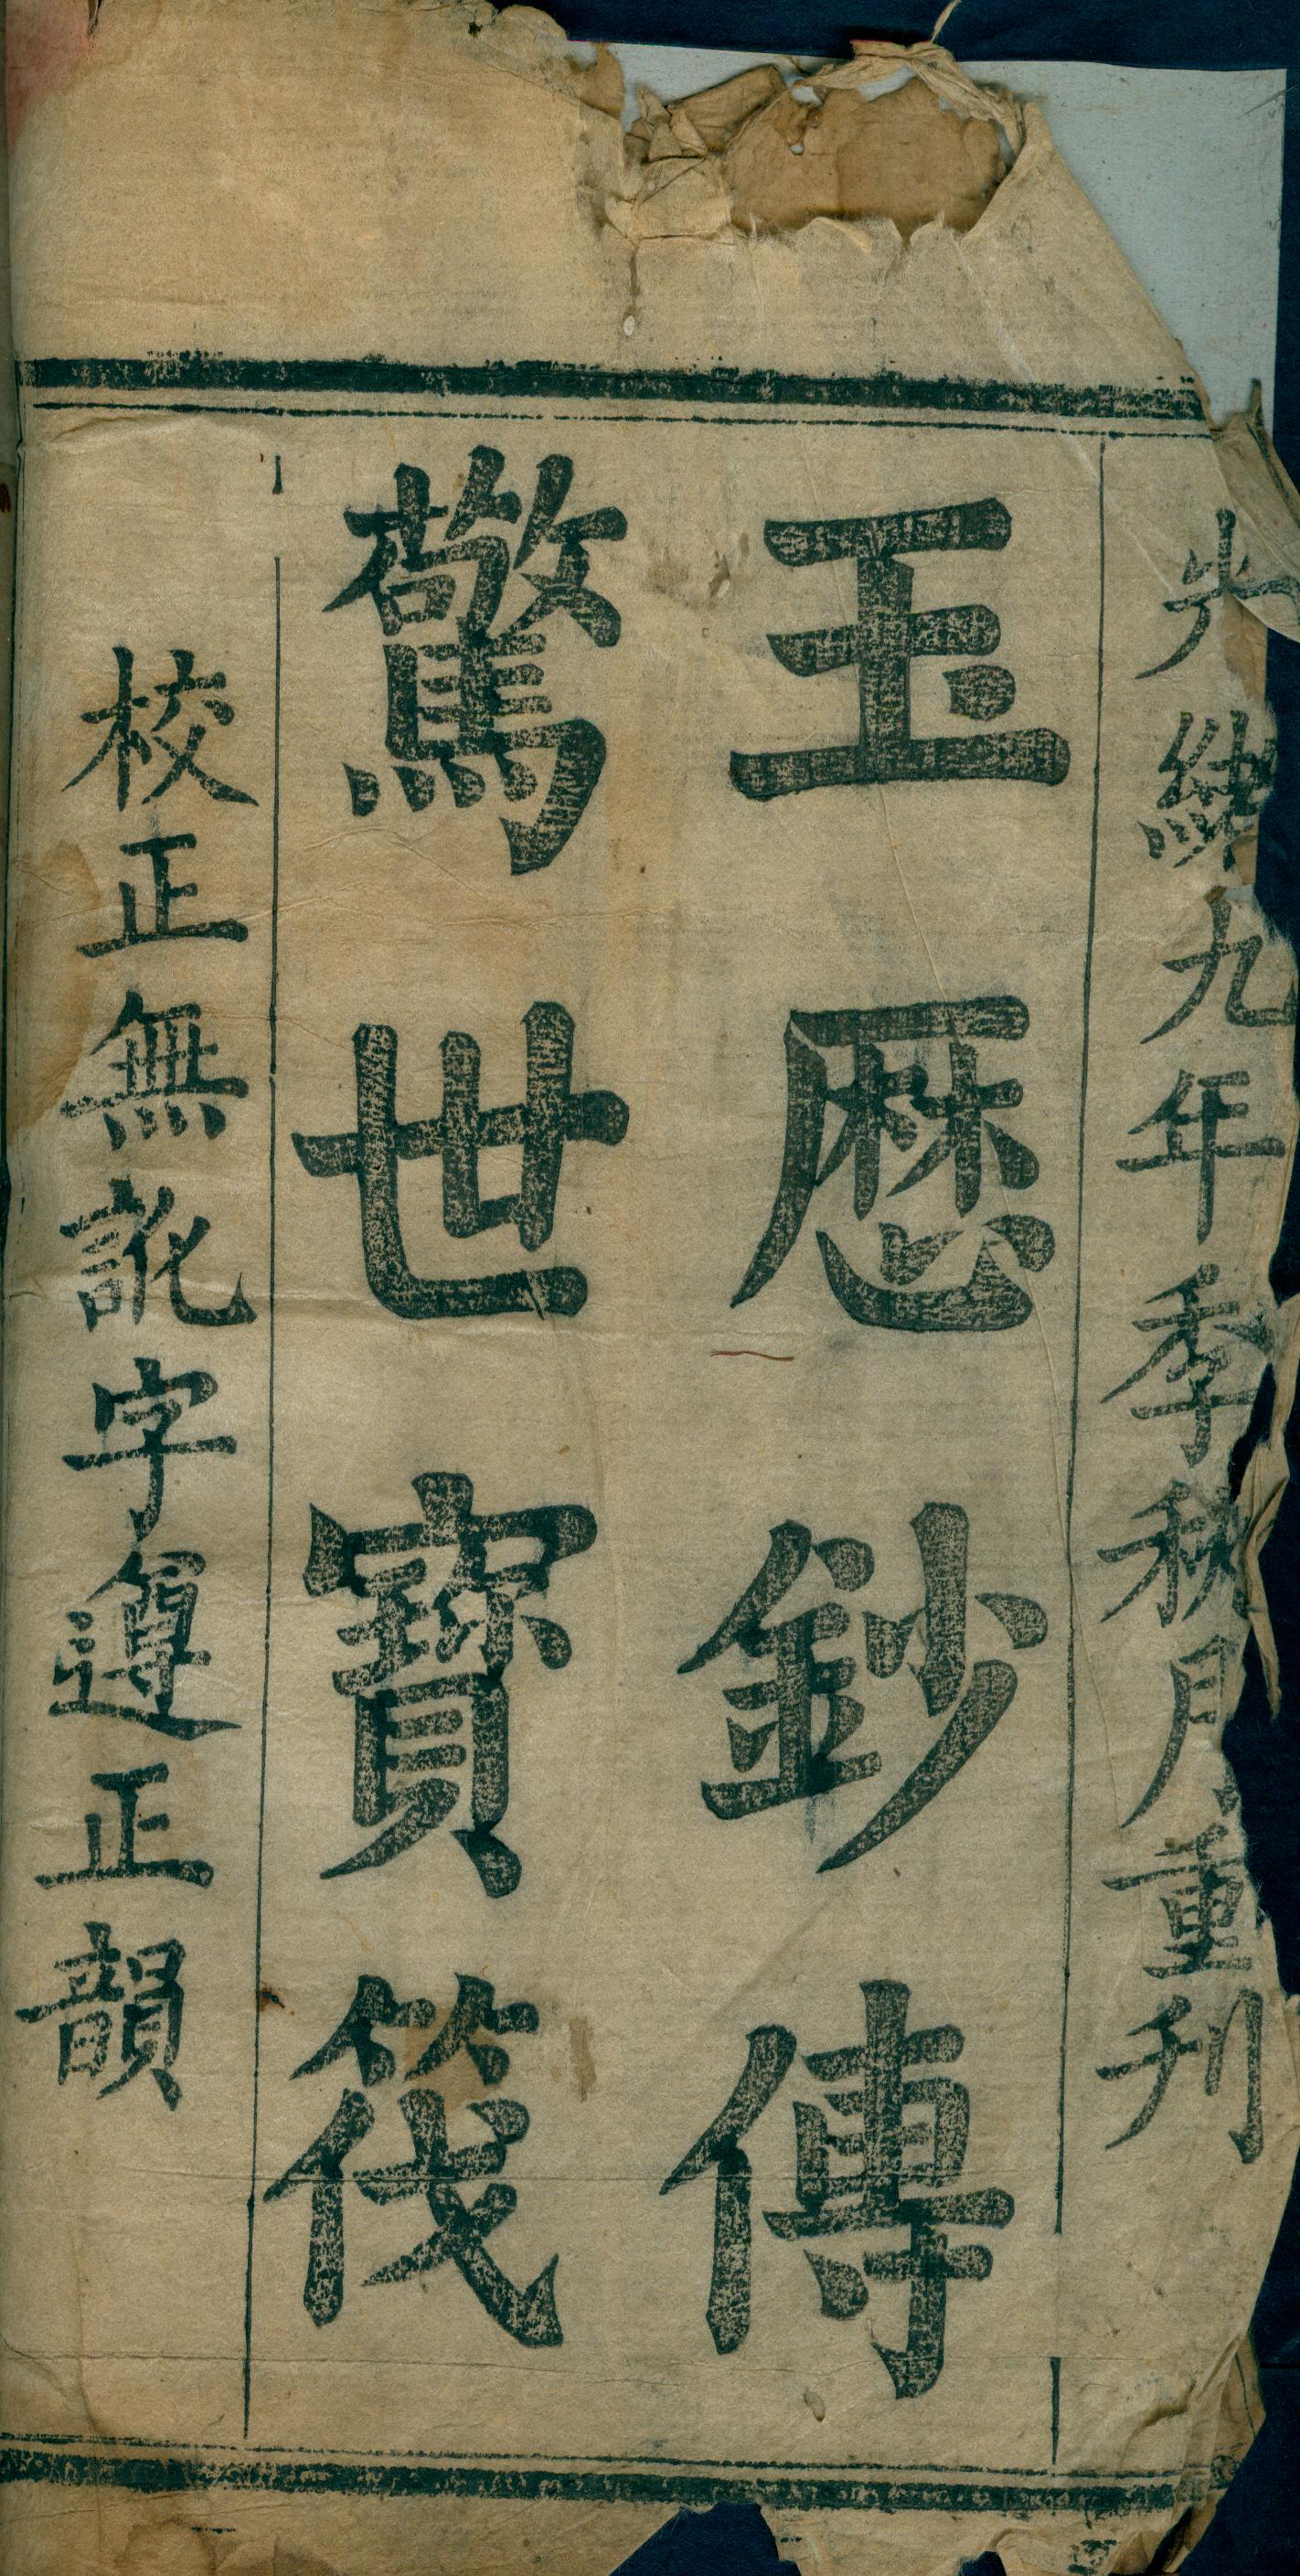 光緒九年季秋月重刊
玉厯鈔傳
驚世寶筏
校正無訛字遵正韻